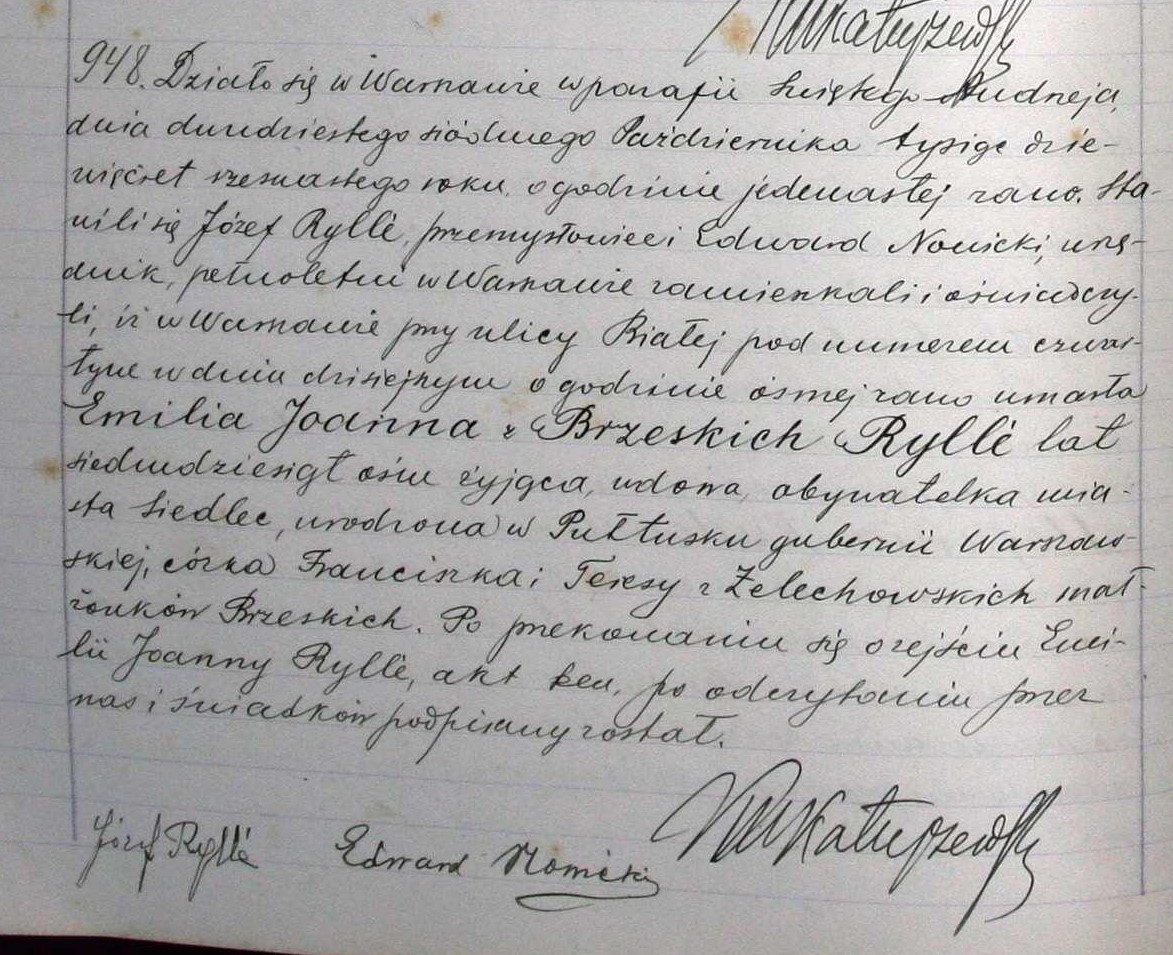 948. Działo się w Warszawie w parafii Świętego Andrzeja,
dnia dwudziestego siódmego Października tysiąc dzie-
więćset szesnastego roku, o godzinie jedenastej rano. Sta-
wili się Józef Ryllé, przemysłowiec i Edward Nowicki, urzę-
dnik, pełnoletni w Warszawie zamieszkali i oświadczy-
li, iż w Warszawie przy ulicy Białej pod numerem czwar-
tym w dniu dzisiejszym o godzinie ósmej rano umarła
Emilia Joanna z Brzeskich Ryllé lat
siedmdziesiąt ośm żyjąca, wdowa, obywatelka mia-
sta Siedlec, urodzona w Pułtusku gubernii Warszaw-
skiej, córka Franciszka i Teresy z Żelechowskich mał-
żonków Brzeskich. Po przekonaniu się o zejściu Emi-
lii Joanny Ryllé, akt ten, po odczytaniu przez
nas i świadków podpisany został.
Józef Ryllé Edward Nowicki